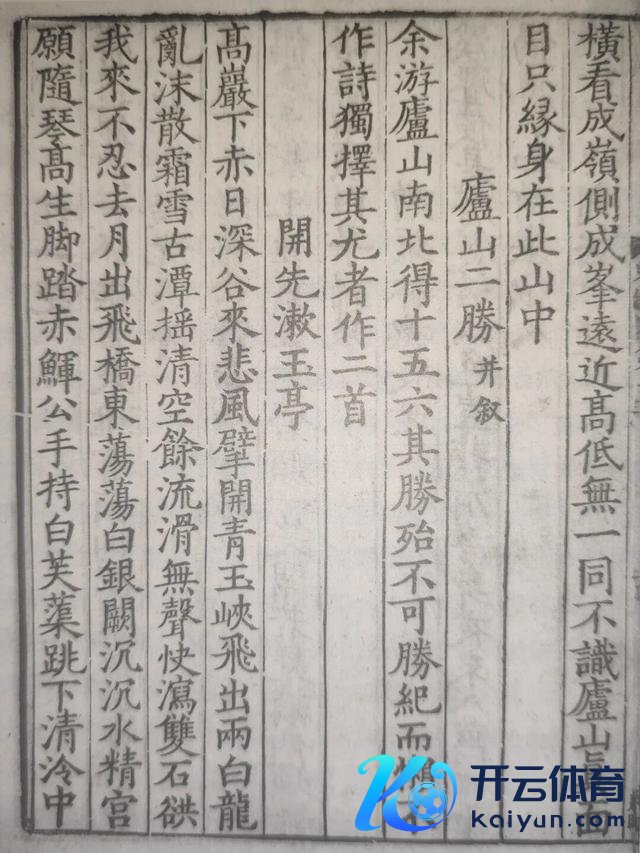 橫看成嶺側成峯遠近髙低無一同不識廬山真面
目只緣身在此山中
廬山二勝并叙
余游廬山南北得十五六其勝殆不可勝紀而懶不
作詩獨擇其尤者作二首
開先漱玉亭
髙巖下赤日深谷來悲風擘開青玉峽飛出兩白龍
亂沫散霜雪古潭揺清空餘流滑無聲快瀉雙石谼
我來不忍去月出飛橋東蕩蕩白銀闕沉沉水精宮
願隨琴髙生脚踏赤鯶公手持白芙蕖跳下清泠中
开云体育
kaiyun.com